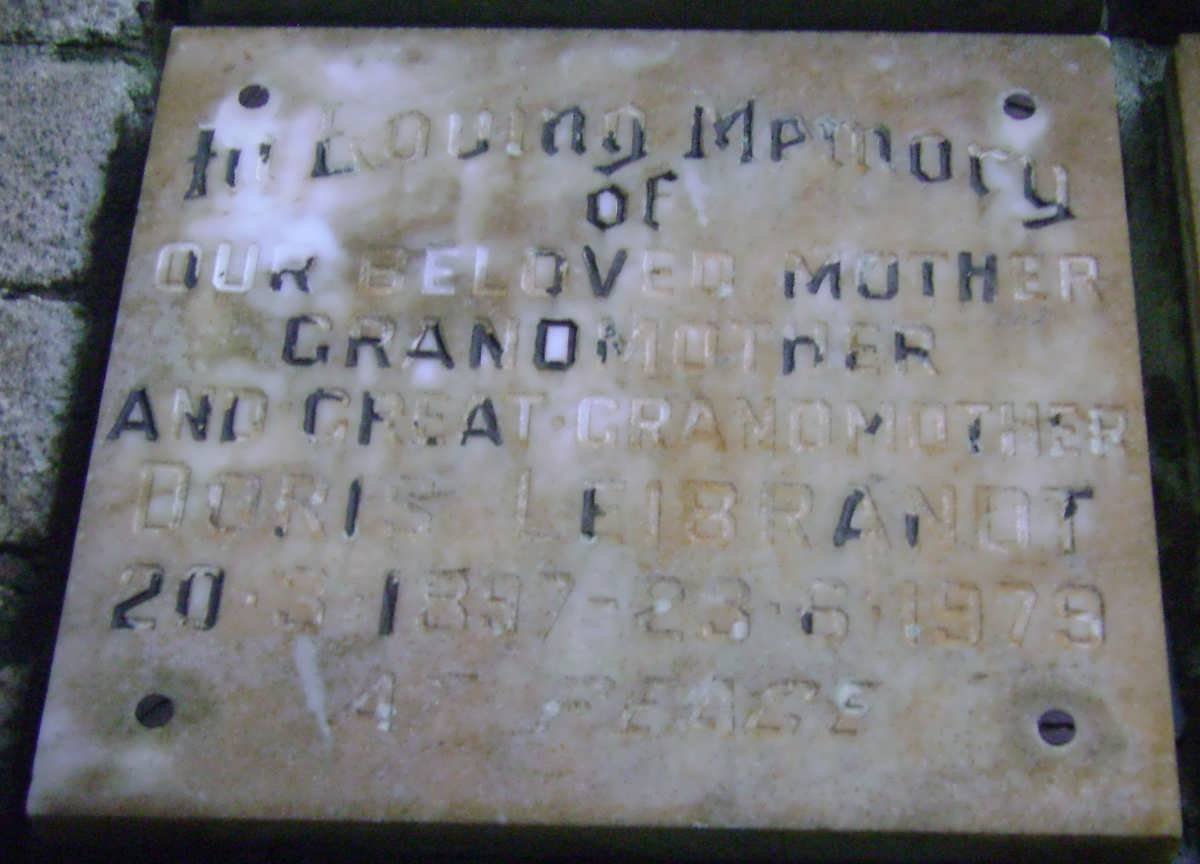 In Loving Memory
of
OUR BELOVED MOTHER
GRANDMOTHER
AND GREAT·GRANDMOTHER
DORIS LEIBRANDT
20·3·1897-23·6·1979
AT PEACE